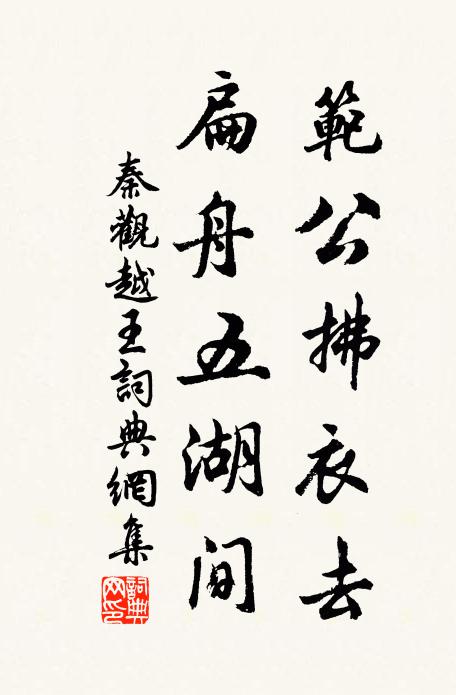 範公拂衣去
扁舟五湖間
秦觀越王詞典網集
詞典網印